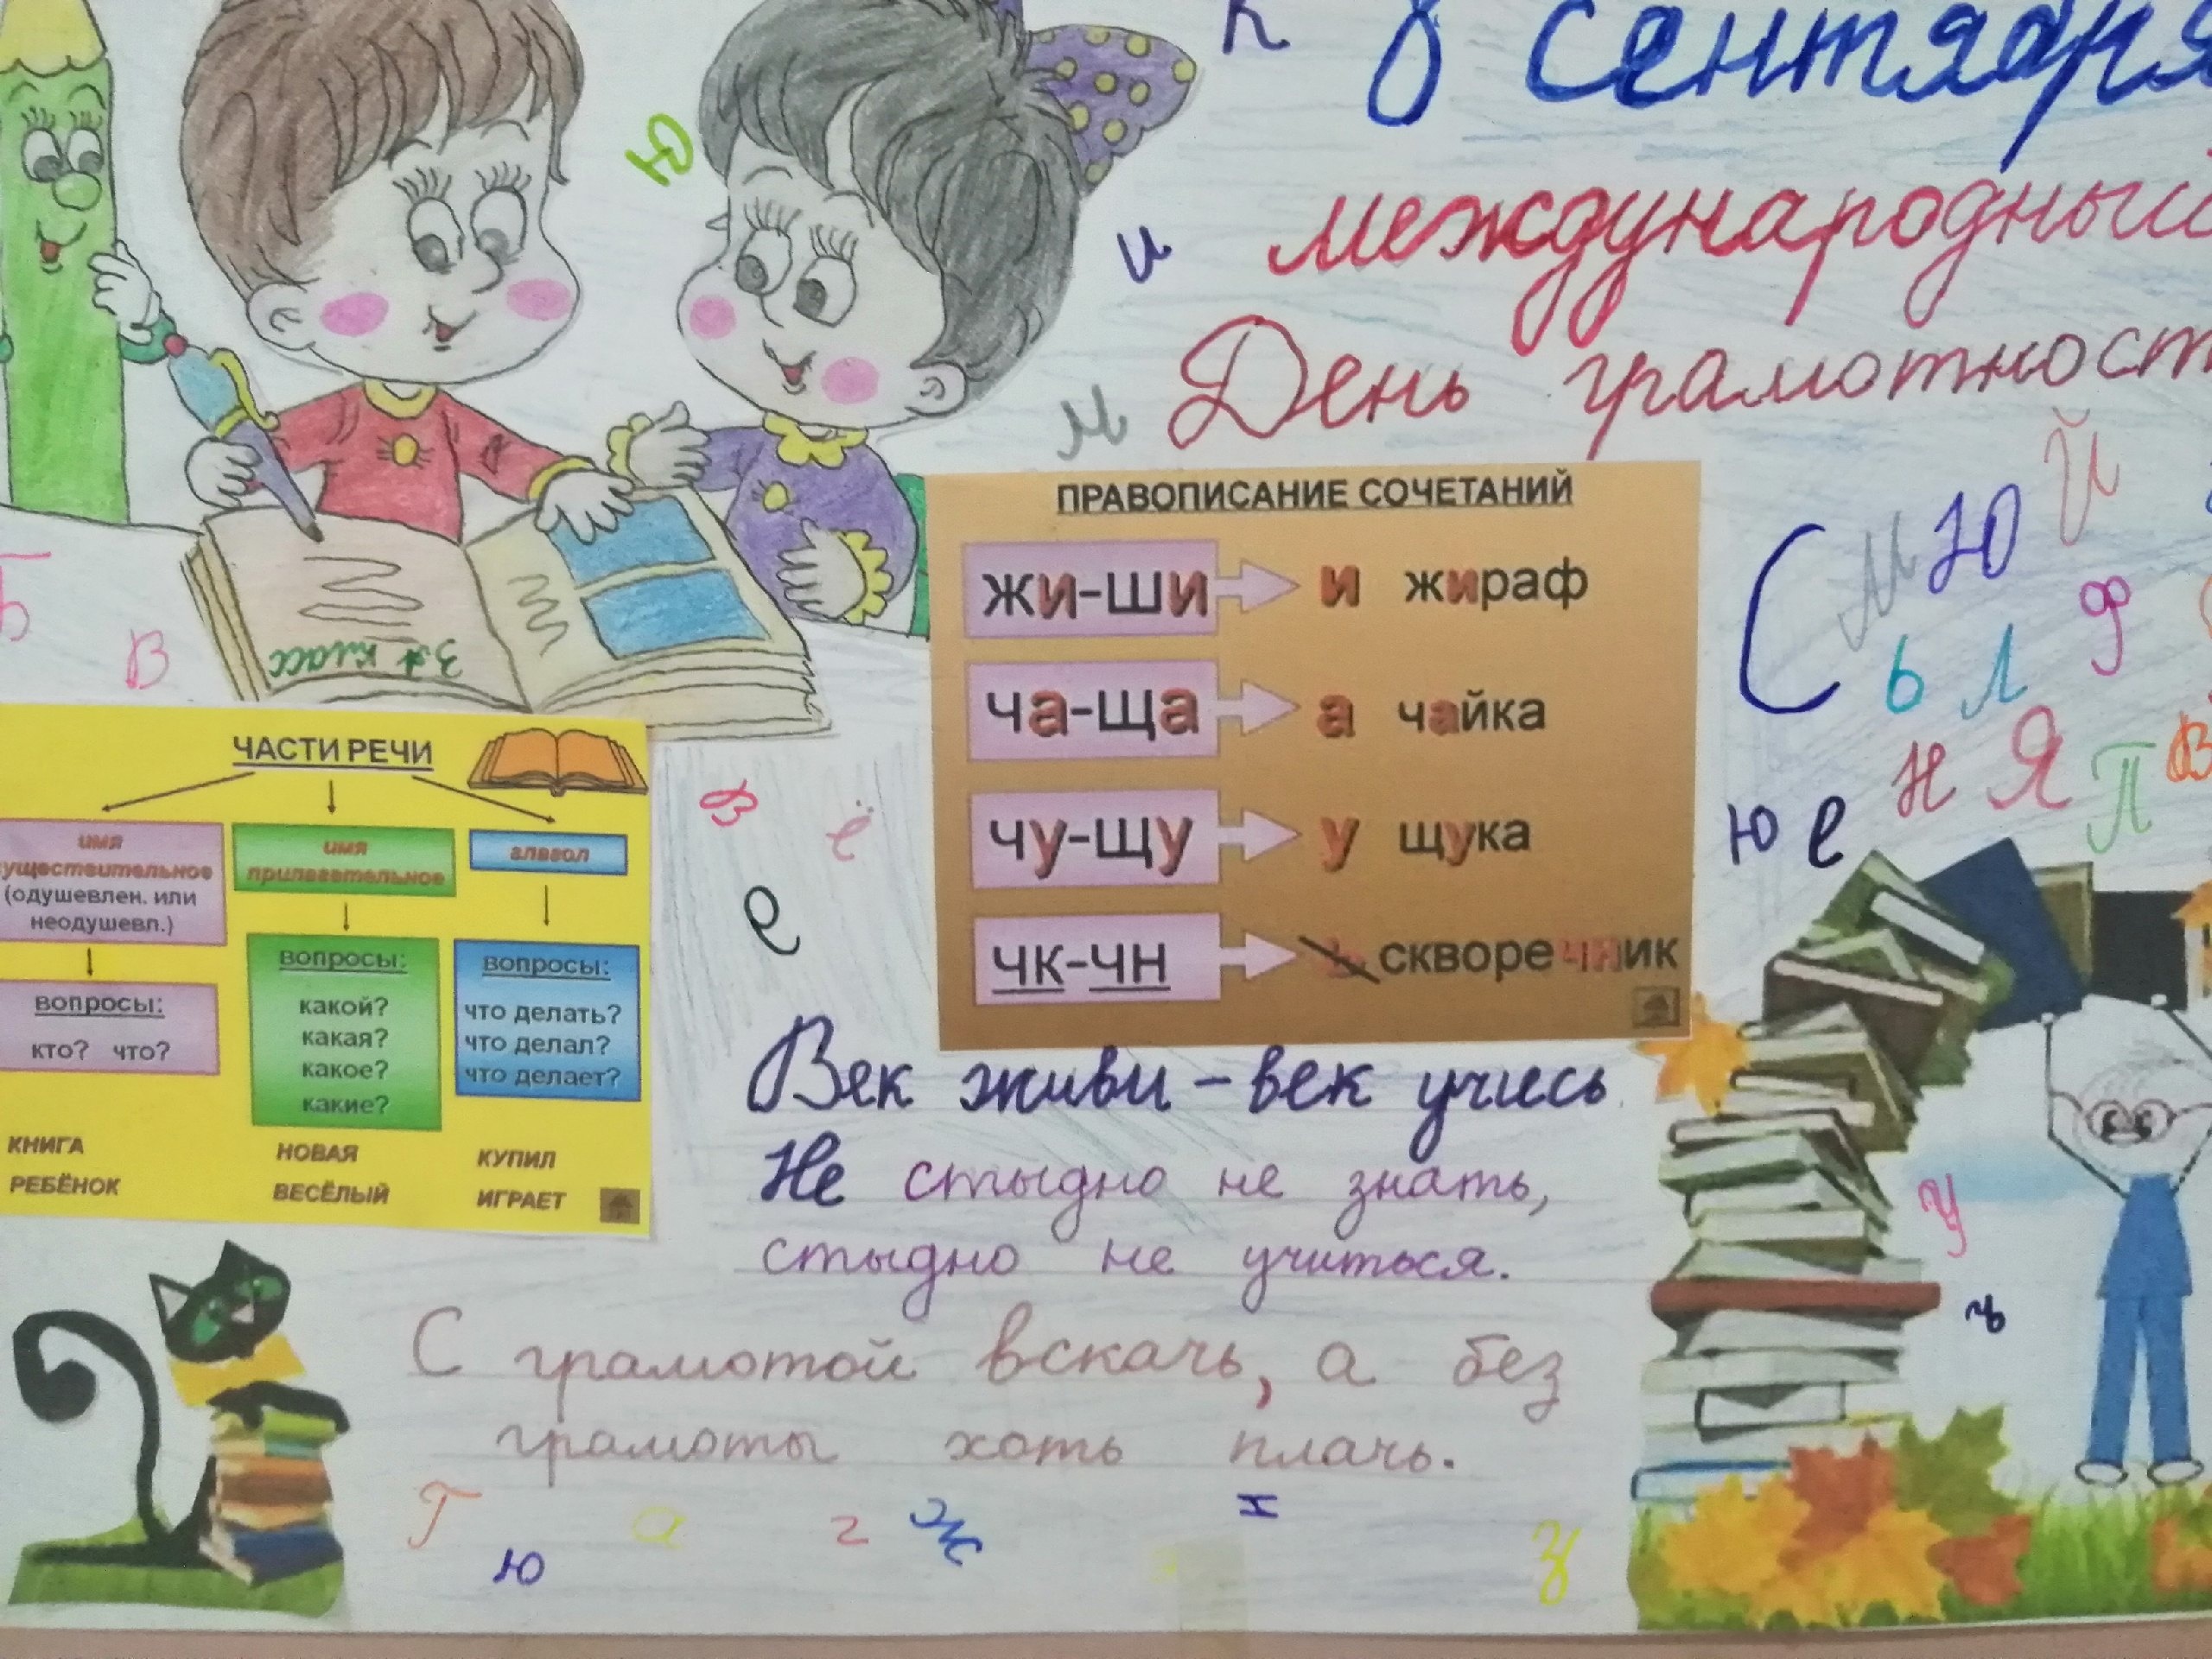 8 сентября
международный
День грамотност
ПРАВОПИСАНИЕ СОЧЕТАНИЙ
жи-ши и жираф
ча-ща а чайка
чу-щу у щука
чк-чн ь скворечник
С М Ю Й
Ь Л Ф
Н Я П В
ю е
К
и
М
Б
В
3А класс
ЧАСТИ РЕЧИ
имя
уществительное
(одушевлен. или
неодушевл.)
вопросы:
кто? что?
КНИГА
РЕБЁНОК
имя
прилагательное
вопросы:
какой?
какая?
какое?
какие?
НОВАЯ
ВЕСЁЛЫЙ
глагол
вопросы:
что делать?
что делал?
что делает?
КУПИЛ
ИГРАЕТ
в ё
е
Век живи – век учись
Не стыдно не знать,
стыдно не учиться.
С грамотой вскачь, а без
грамоты хоть плачь.
У
ъ
Г а г Ж х З
ю